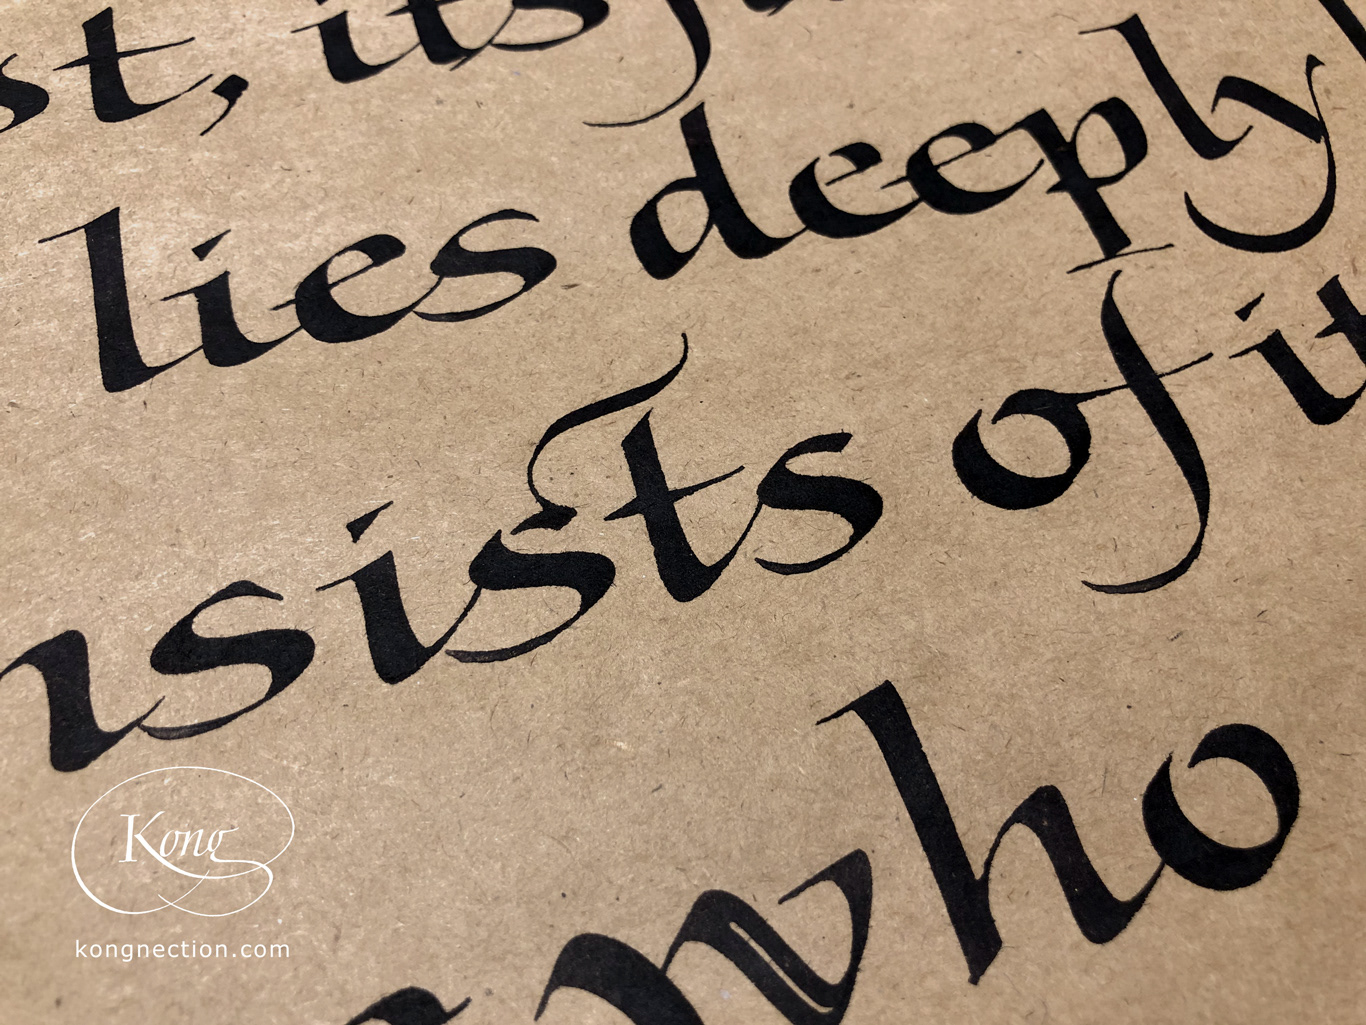 st, its
lies deeply
nsists of it
who
Kong
kongnection.com